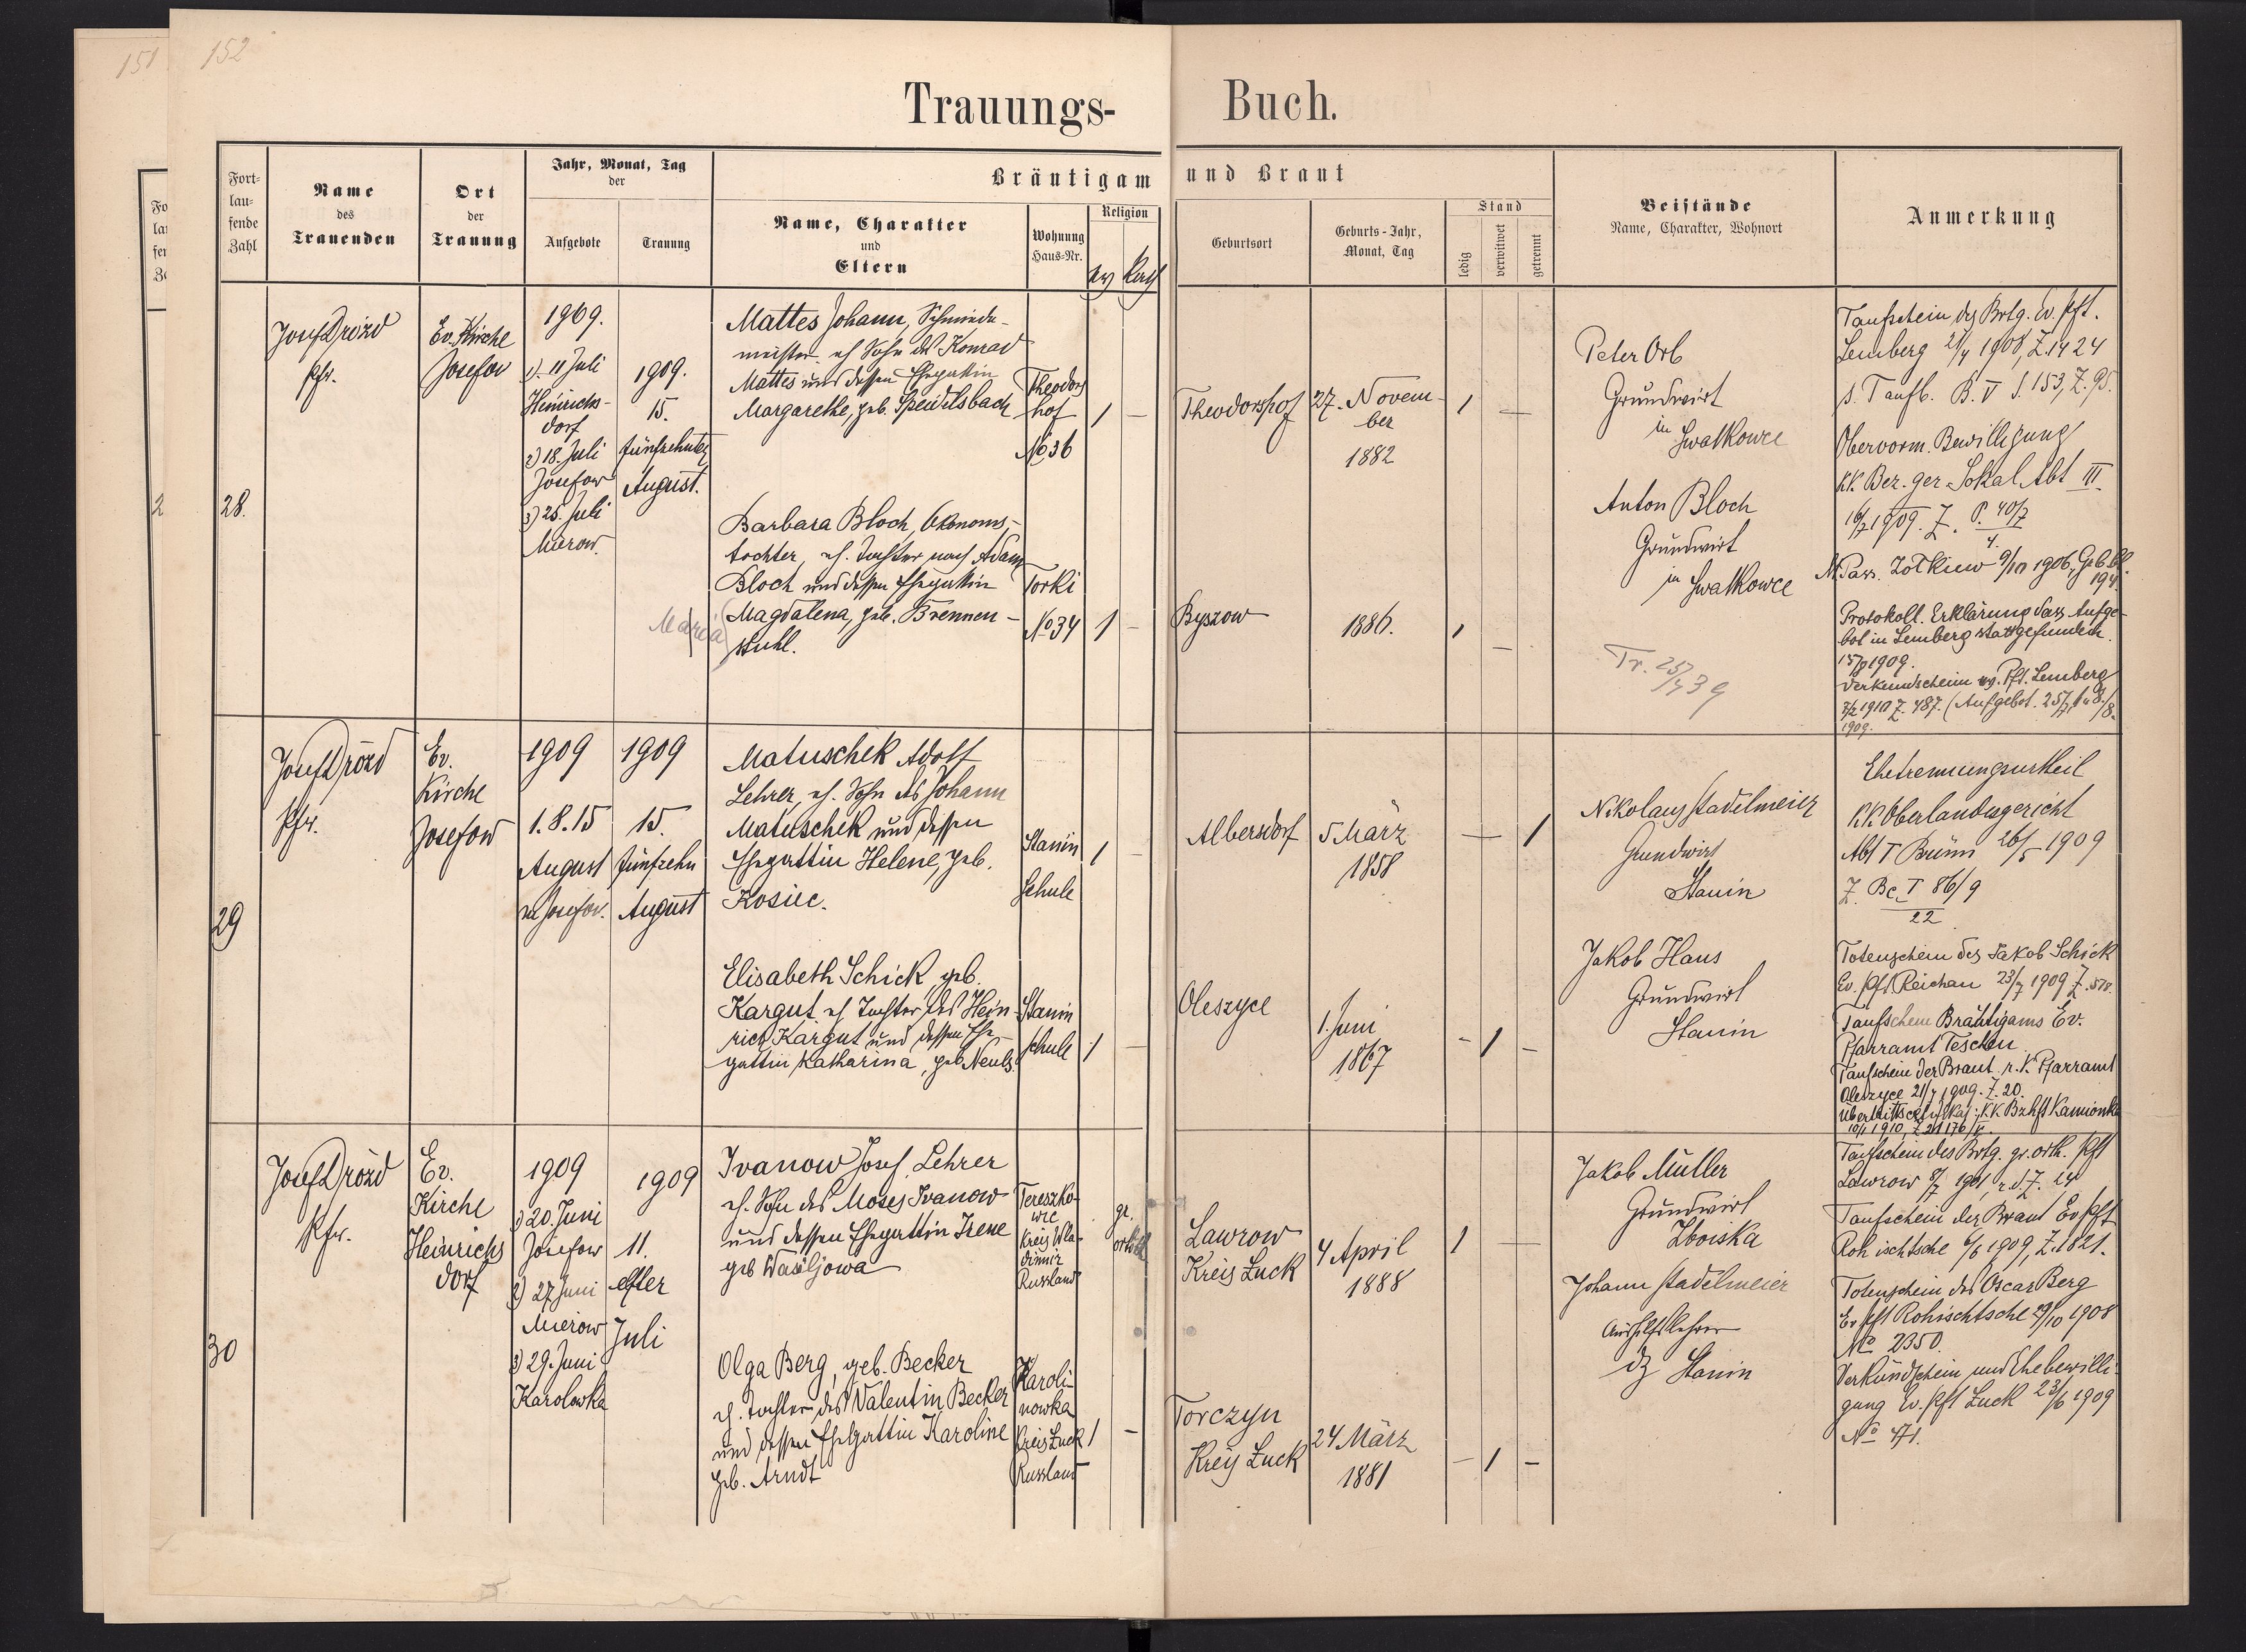 151
152
Trauungs- Buch.
Fort-
lau-
fende
Zahl
Name
des
Trauenden
Ort
der
Trauung
Jahr, Monat, Tag
der
Aufgebote
Trauung
Bräutigam und Braut
Name, Charakter
und
Eltern
Wohnung
Haus-Nr.
Religion
ev
Kath
Geburtsort
Geburts-Jahr,
Monat, Tag
Stand
ledig
verwitwet
getrennt
Beistände
Name, Charakter, Wohnort
Anmerkung
28.
Josef Drózd
Pfr.
Ev. Kirche
Josefow
1909.
1) 11 Juli
Heinrichs-
dorf
2) 18. Juli
Josefow
3) 25. Juli
Mierow.
1909.
15.
fünfzehnter
August.
Mattes Johann, Schmiede-
meister, eh. Sohn des Konrad
Mattes und dessen Ehegattin
Margarethe, geb. Speidelsbach
Theodors
hof
No 36
1 —
Barbara Bloch, Ökonoms-
tochter, eh. Tochter nach Adam
Bloch und dessen Ehegattin
Magdalena, geb. Brennen-
stuhl.
Maria
Torki
No 34
1 —
Theodorshof
27. Novem-
ber
1882
1 —
Byszow
1886.
1 —
Peter Orb
Grundwirt
in
Iwatkowce
Anton Bloch
Grundwirt
in Iwatkowce
Tr. 25/7 39
Taufschein des Brtg. Ev. Pft.
Lemberg 21/4 1908, Z. 1424
s. Taufb. B. V S. 153, Z. 95.
Obervorm. Bewilligung
KK. Bez. ger. Sokal Abt III.
16/7 1909. Z. P. 40/7
4.
M. Pass. Zolkiew 9/10 1906, Geb. bl.
194.
Protokoll. Erklärung dass Aufge-
bot in Lemberg stattgefunden
15/8 1909.
Verkündschein ev. Pft. Lemberg
7/2 1910 Z. 487. (Aufgebot. 25/7, 1 u 8/8.
1909.
29
Josef Drózd
Pfr.
Ev.
Kirche
Josefow
1909
1. 8. 15
August
in Josefow.
1909
15.
fünfzehn
August
Matuschek Adolf
Lehrer, eh. Sohn des Johann
Matuschek und dessen
Ehegattin Helene, geb.
Kosiec.
Stanin
Schule
1 —
Elisabeth Schick, geb.
Kargut, eh Tochter des Hein-
rich Kargut und dessen Ehe-
gattin Katharina, geb. Neuls.
Stanin
Schule
1 —
Albersdorf
5 März
1858
— 1
Oleszyce
1. Juni
1867
- 1 -
Nikolaus Stadelmeier
Grundwirt
Stanin
Jakob Haus
Grundwirt
Stanin
Ehetrennungsurtheil
KK Oberlandesgericht
Abt I Brünn 26/5 1909
Z. Bc I 86/9
22
Totenschein des Jakob Schick
Ev. Pft Reichau 23/7 1909 Z. 578.
Taufschein Bräutigams Ev.
Pfarramt Teschen
Taufschein der Braut r. k. Pfarramt
Oleszyce 21/7 1909. Z. 20.
K.K. Bzhft Kamionka
30
Josef Drózd
Pfr.
Ev.
Kirche
Heinrichs
dorf
1909
1) 20. Juni
Josefow
2) 27 Juni
Mierow
3) 29. Juni
Karolowka
1909
11.
elfter
Juli
Ivanow Josef, Lehrer
eh. Sohn des Moses Ivanow
und dessen Ehegattin Irene
geb Wasiljowa
Tereszko-
wic
Kreis Wla-
dimir
Russland
gr.
orth
Olga Berg, geb. Becker
eh. Tochter des Valentin Becker
und dessen Ehegattin Karoline
geb. Arndt
Karoli-
nowka
Kreis Luck
Russland
1 —
Lawrow
Kreis Luck
4 April
1888
1 —
Torczyn
Kreis Luck
24 März
1881
— 1 —
Jakob Müller
Grundwirt
Zboiska
Johann Stadelmeier
Aushilfslehrer
dz Stanin
Taufschein des Brtg. gr. orth. Pft
Lawrow 8/7 1901, r. d. Z. 24
Taufschein der Braut Ev Pft
Rohischtsche 6/6 1909, Z. 1821.
Totenschein des Oscar Berg
Ev Pft Rohischtsche 29/10 1908
No 2350.
Verkündschein und Ehebewilli-
gung Ev. Pft Luck 23/6 1909
No 471.